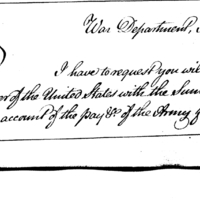 War Department,
I have to request you wil
of the United States with the Sum
account of the pay &c of the Army